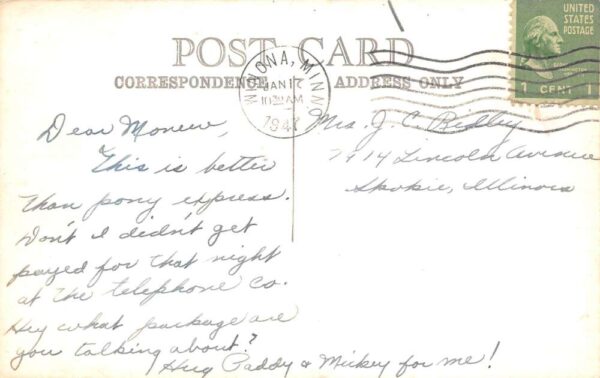 POST CARD
CORRESPONDENCE
ADDRESS ONLY
WINONA, MINN
JAN 17
10 30 AM
1947
UNITED
STATES
POSTAGE
WASHINGTON
1 CENT 1
Dear
This is better
than pony express.
Don't I didn't get
payed for that night
at the telephone co.
Hey what package are
you talking about?
Hug Paddy & Mickey for me!
Mrs. J. C. Ridley
7914 Lincoln Avenue
Skokie, Illinois